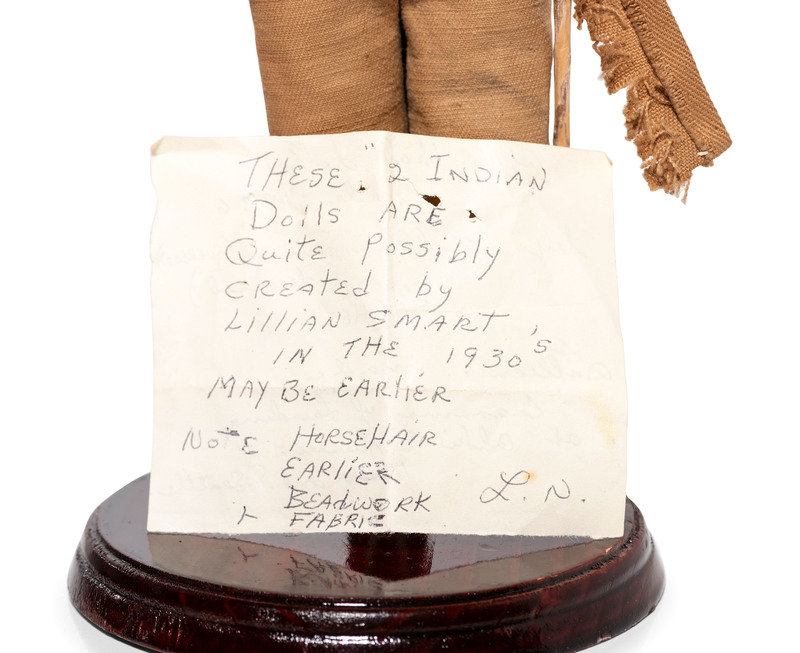 THESE 2 INDIAN
Dolls ARE
Quite Possibly
CREATEd by
LILLIAN SMART,
IN THE 1930's
MAY BE EARLIER
NOTE HORSEHAIR
EARLIER
BEADWORK
+ FABRIC
L. N.